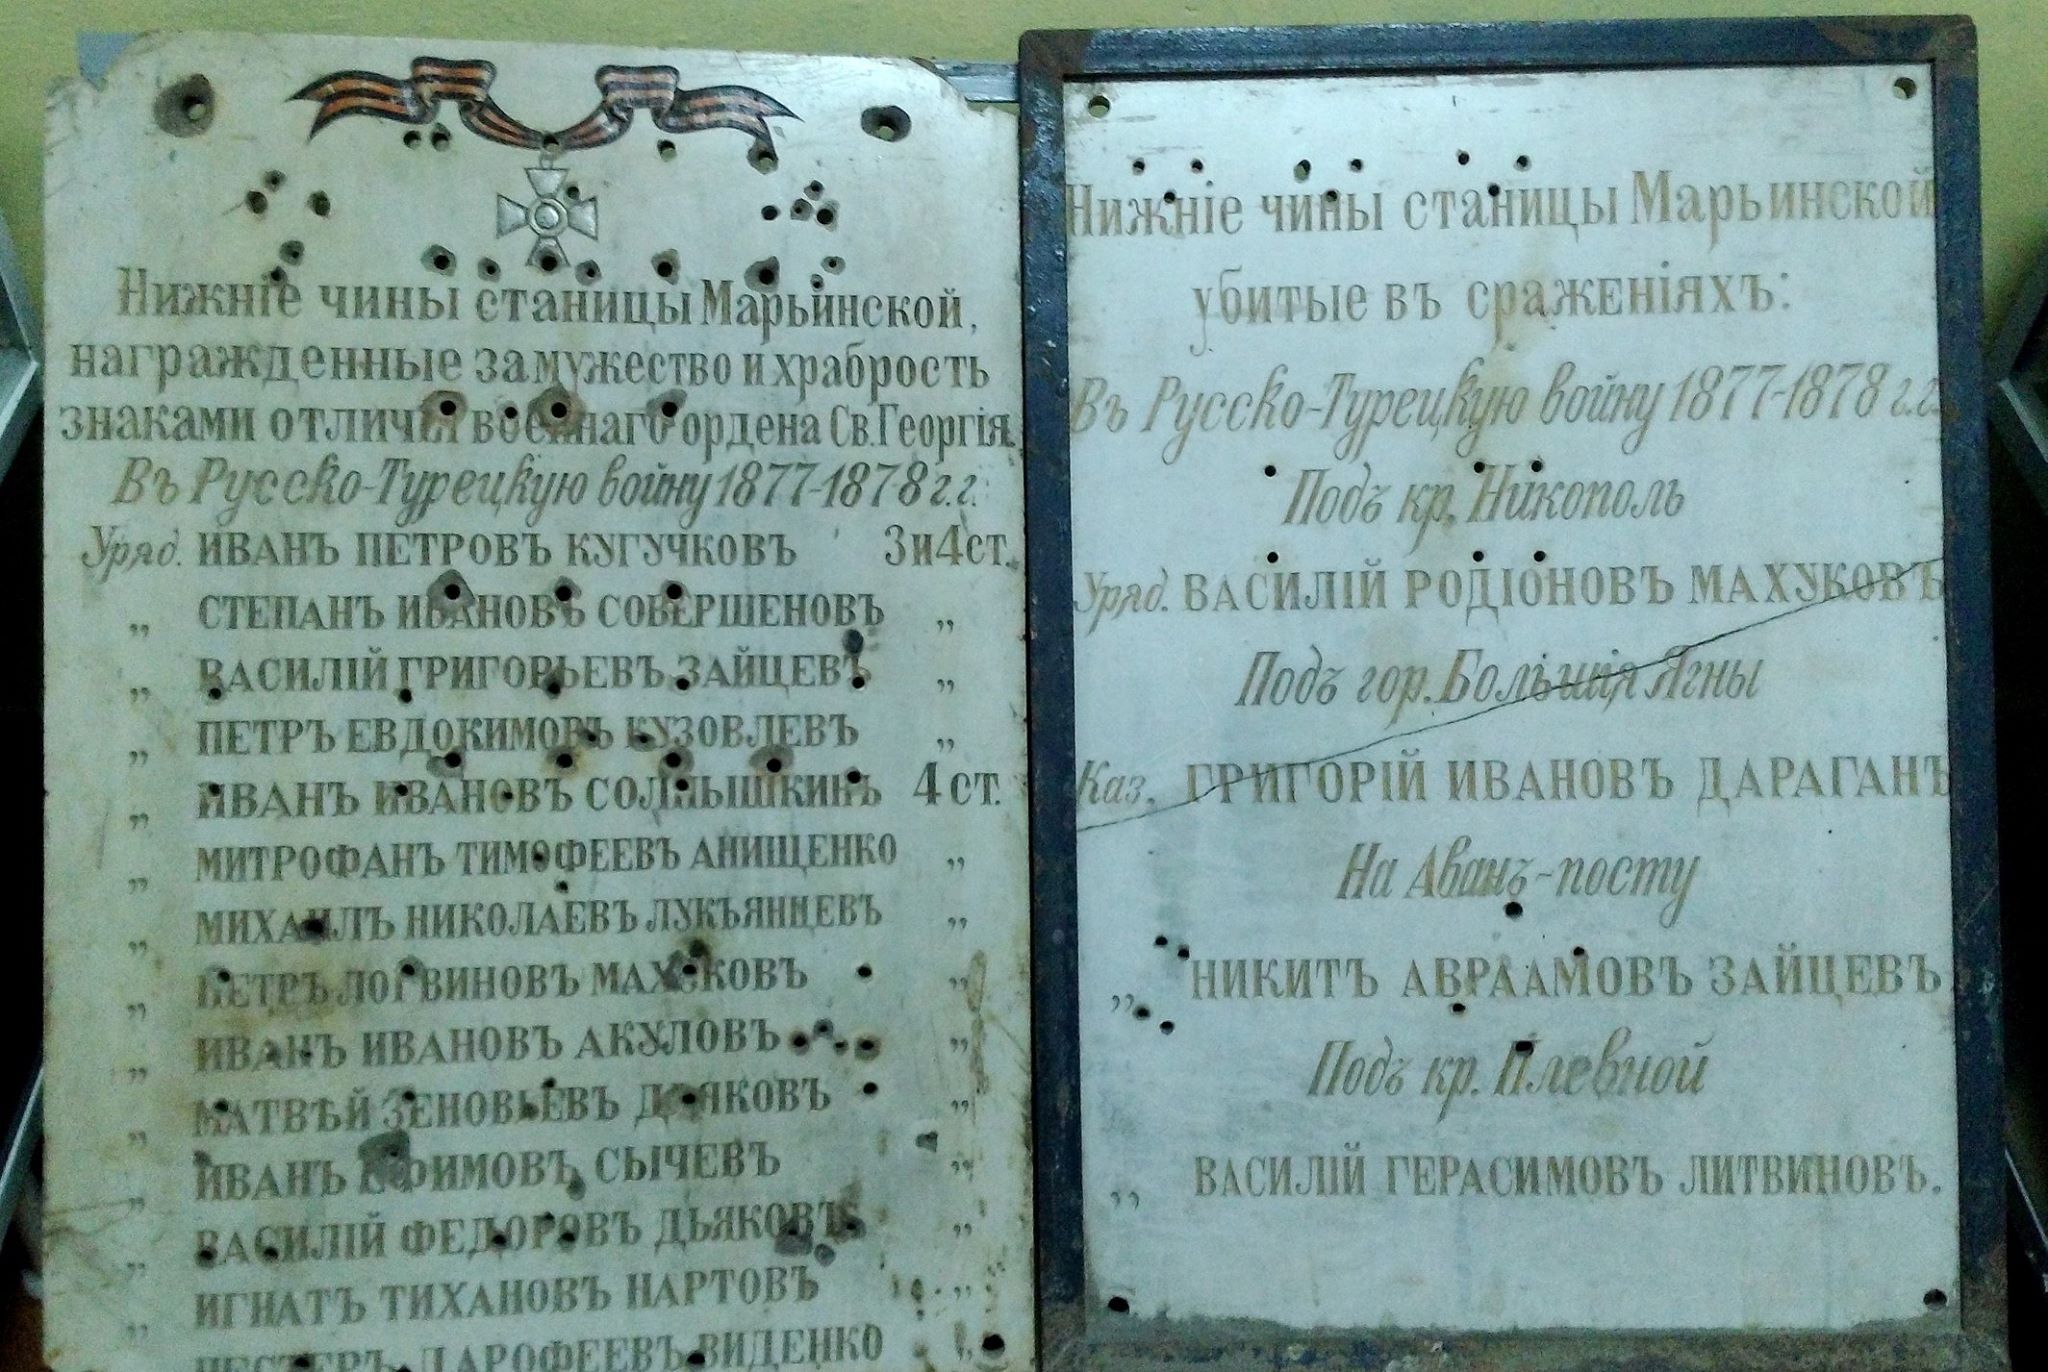 Нижніе чины станицы Марьинской,
награжденные за мужество и храбрость
знаками отличія военнаго ордена Св. Георгія.
Въ Русско-Турецкую войну 1877-1878 г.г.
Уряд. ИВАНЪ ПЕТРОВЪ КУГУЧКОВЪ 3 и 4 ст.
„ СТЕПАНЪ ИВАНОВЪ СОВЕРШЕНОВЪ „
„ ВАСИЛІЙ ГРИГОРЬЕВЪ ЗАЙЦЕВЪ „
„ ПЕТРЪ ЕВДОКИМОВЪ КУЗОВЛЕВЪ „
„ ИВАНЪ ИВАНОВЪ СОЛНЫШКИНЪ 4 ст.
„ МИТРОФАНЪ ТИМОФЕЕВЪ АНИЩЕНКО „
„ МИХАИЛЪ НИКОЛАЕВЪ ЛУКЪЯНЦЕВЪ „
„ ПЕТРЪ ЛОГВИНОВЪ МАХУКОВЪ „
„ ИВАНЪ ИВАНОВЪ АКУЛОВЪ „
„ МАТВѢЙ ЗЕНОВЬЕВЪ ДЬЯКОВЪ „
„ ИВАНЪ ЕФИМОВЪ СЫЧЕВЪ „
„ ВАСИЛІЙ ФЕДОРОВЪ ДЬЯКОВЪ „
„ ИГНАТЪ ТИХАНОВЪ НАРТОВЪ „
НЕСТЕРЪ ДАРОФЕЕВЪ ВИДЕНКО „
Нижніе чины станицы Марьинской
убитые въ сраженіяхъ:
Въ Русско-Турецкую войну 1877-1878 г.г.
Подъ кр. Никополь
Уряд. ВАСИЛІЙ РОДІОНОВЪ МАХУКОВЪ
Подъ гор. Большія Ягны
Каз. ГРИГОРІЙ ИВАНОВЪ ДАРАГАНЪ
На Аванъ-посту
„ НИКИТЪ АВРААМОВЪ ЗАЙЦЕВЪ
Подъ кр. Плевной
„ ВАСИЛІЙ ГЕРАСИМОВЪ ЛИТВИНОВЪ.